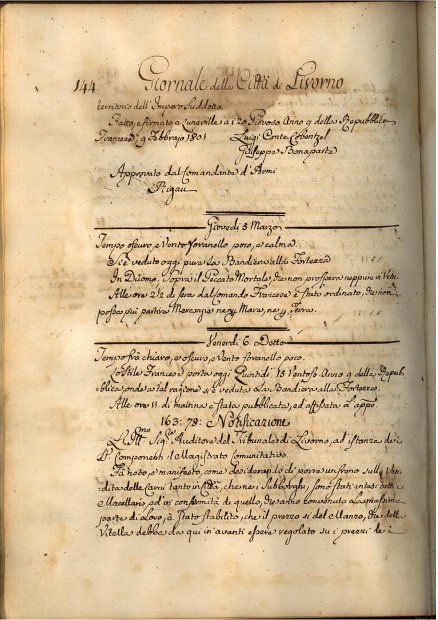 144 Giornale della Città di Livorno
territorio dell'Impero suddetto.
Fatto, e firmato a Luneville a i 20 Piovoso Anno 9 della Repubblica
Francese 9 Febbrajo 1801
Luigi Conte Cobentzel
Giuseppe Bonaparte
Approvato dal Comandante d'Armi
Rigau
Giovedì 5 Marzo
Tempo oscuro, e Vento foranello poco, e calma.
Si è veduto oggi pure la Bandiera alla Fortezza
In Duomo, sopra il Peccato Mortale, che non prospera neppure in Vita.
Alle ore 2½ di sera dal Comando Francese è stato ordinato, che non
possa più partire Mercanzie ne p Mare, ne p Terra.
Venerdì 6 Detto
Tempo frà chiaro, e oscuro, Vento foranello poco.
Lo Stile Francese porta oggi Quintidì 15 Ventoso Anno 9 della Repub-
blica, onde a tal ragione si è veduta la Bandiera alla Fortezza.
Alle ore 11 di mattina è stata pubblicata, ed affissata l'appº
163: 78: Notificazione
Auditore del Tribunale di Livorno, ad istanza de i
Componenti il Magistrato Comunitativo.
Fà noto, e manifesto, come desiderando di porre un freno sulla Ven-
dita delle Carni tanto in Città, che nei Subborghi, sono stati intesi tutti i
Macellari ed in conformità di quello, che hanno convenuto la massima
parte di Loro, è stato stabilito, che il prezzo sì del Manzo, che della
Vitella debba da qui in avanti essere regolato su i prezzi de i